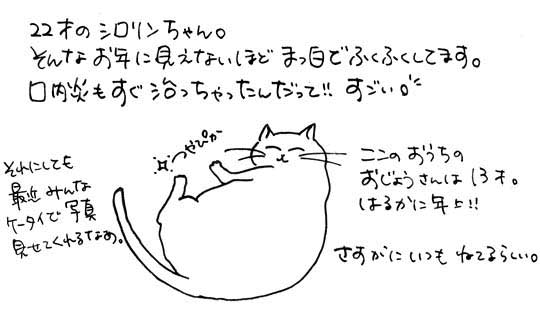 22才のシロリンちゃん。
そんなお年に見えないほどまっ白でふくふくしてます。
口内炎もすぐ治っちゃったんだって!! すごい。
つやぴか
それにしても
最近みんな
ケータイで写真
見せてくれるなあ。
ココのおうちの
おじょうさんは13才。
はるかに年上!!
さすがにいつもねてるらしい。